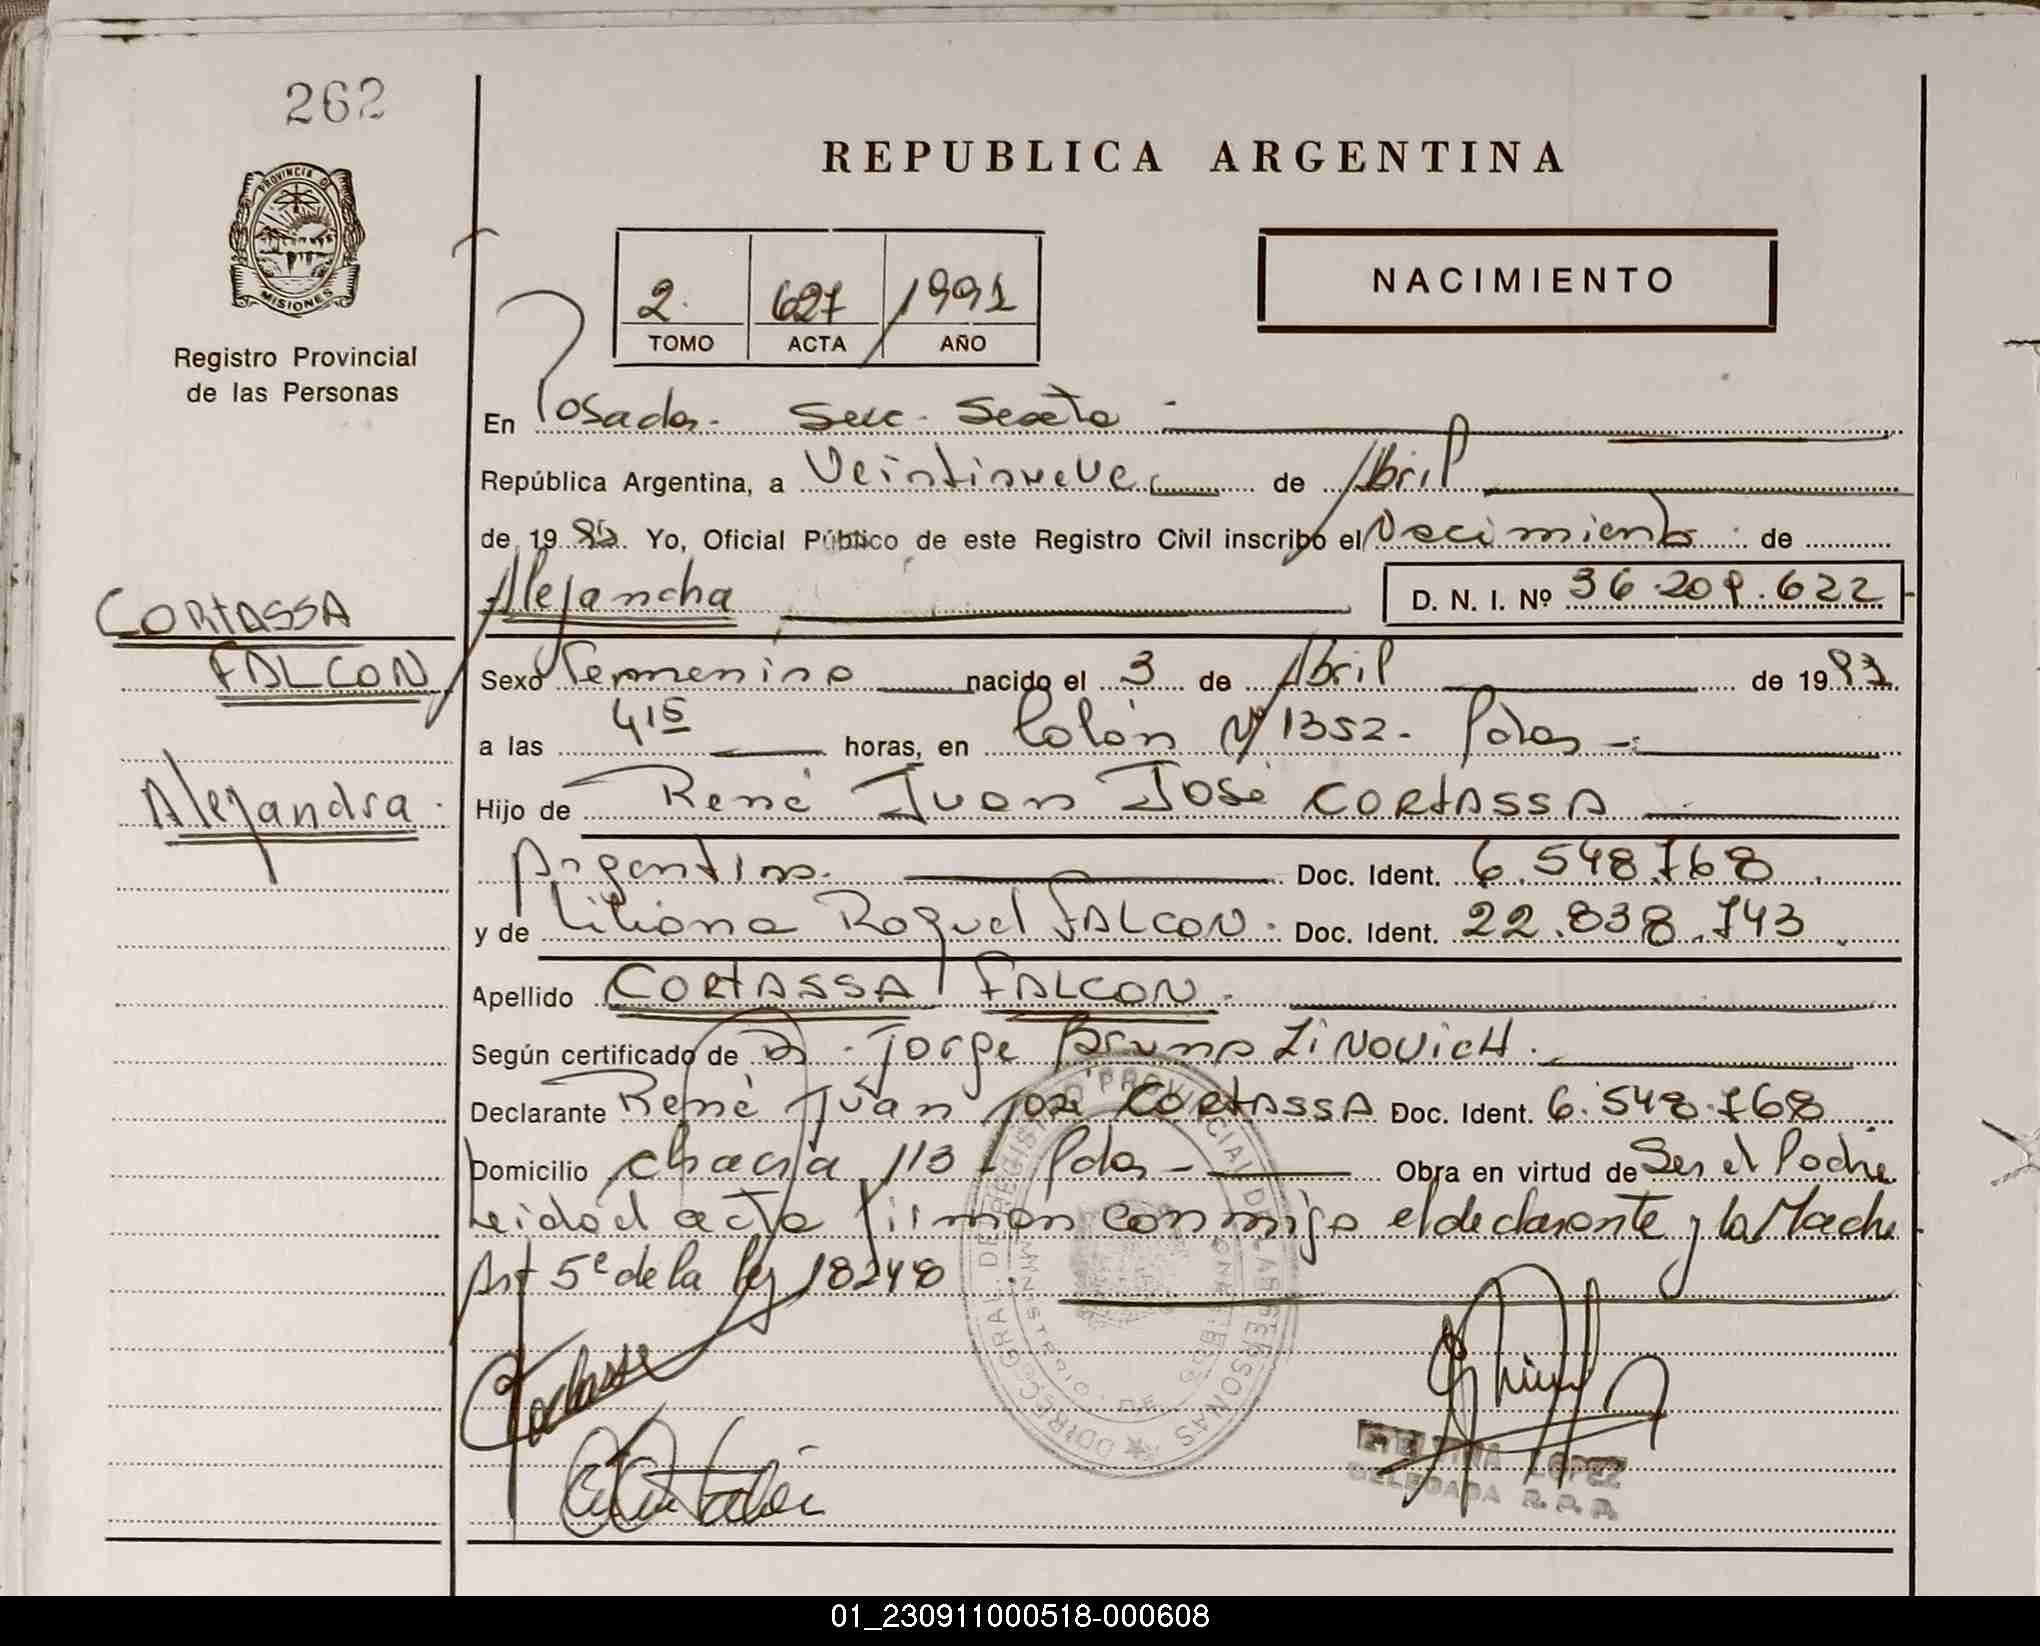 262
REPUBLICA ARGENTINA
PROVINCIA DE
MISIONES
Registro Provincial
de las Personas
2. 627 1991
TOMO ACTA AÑO
NACIMIENTO
En Posadas. Secc. Sexta
República Argentina, a Veintinueve de Abril
de 19 Yo, Oficial Público de este Registro Civil inscribo el Nacimiento de
Alejandra D. N. I. Nº 36.209.622
CORTASSA
FALCON
Alejandra
Sexo Femenino nacido el 3 de Abril de 1991
a las 4 15 horas, en Colón Nº 1352. Pdas
Hijo de René Juan José CORTASSA
Argentino. Doc. Ident. 6.548.768
y de Liliana Raquel FALCON. Doc. Ident. 22.838.743
Apellido CORTASSA FALCON.
Según certificado de Dr. Jorge Bruno ZINOVICH.
Declarante René Juan José CORTASSA Doc. Ident. 6.548.768
Domicilio chacra 113 - Pdas - Obra en virtud de Ser el Padre
Leido el acta firman conmigo el declarante y la Madre
Art 5º de la ley 18248
LOPEZ
DELEGADA R. P. P.
01_230911000518-000608